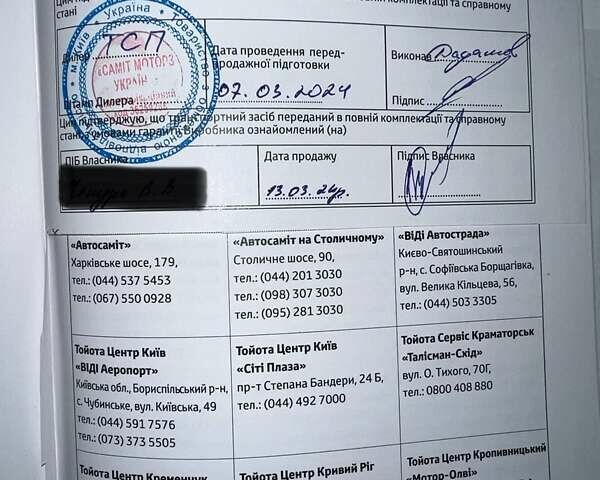 стані
повній комплектації та справному
Дилер ТСП
Дата проведення перед-
продажної підготовки
Виконав
Україна
м. Київ
Товариство з
«САМІТ МОТОРЗ
УКРАЇНА»
Штамп Дилера
07.03.2024
Підпис
Цим підтверджую, що транспортний засіб переданий в повній комплектації та справному
стані, з умовами гарантії Виробника ознайомлений (на)
ПІБ Власника
Дата продажу
Підпис Власника
13.03.24р.
«Автосаміт»
Харківське шосе, 179,
тел.: (044) 537 5453
тел.: (067) 550 0928
«Автосаміт на Столичному»
Столичне шосе, 90,
тел.: (044) 201 3030
тел.: (098) 307 3030
тел.: (095) 281 3030
«ВіДі Автострада»
Києво-Святошинський
р-н, с. Софіївська Борщагівка,
вул. Велика Кільцева, 56,
тел.: (044) 503 3305
Тойота Центр Київ
«ВІДІ Аеропорт»
Київська обл., Бориспільський р-н,
с. Чубинське, вул. Київська, 49
тел.: (044) 591 7576
тел.: (073) 373 5505
Тойота Центр Київ
«Сіті Плаза»
пр-т Степана Бандери, 24 Б,
тел.: (044) 492 7000
Тойота Сервіс Краматорськ
«Талісман-Схід»
вул. О. Тихого, 70Г,
тел.: 0800 408 880
Тойота Центр Кременчук
Тойота Центр Кривий Ріг
Тойота Центр Кропивницький
«Мотор-Олві»